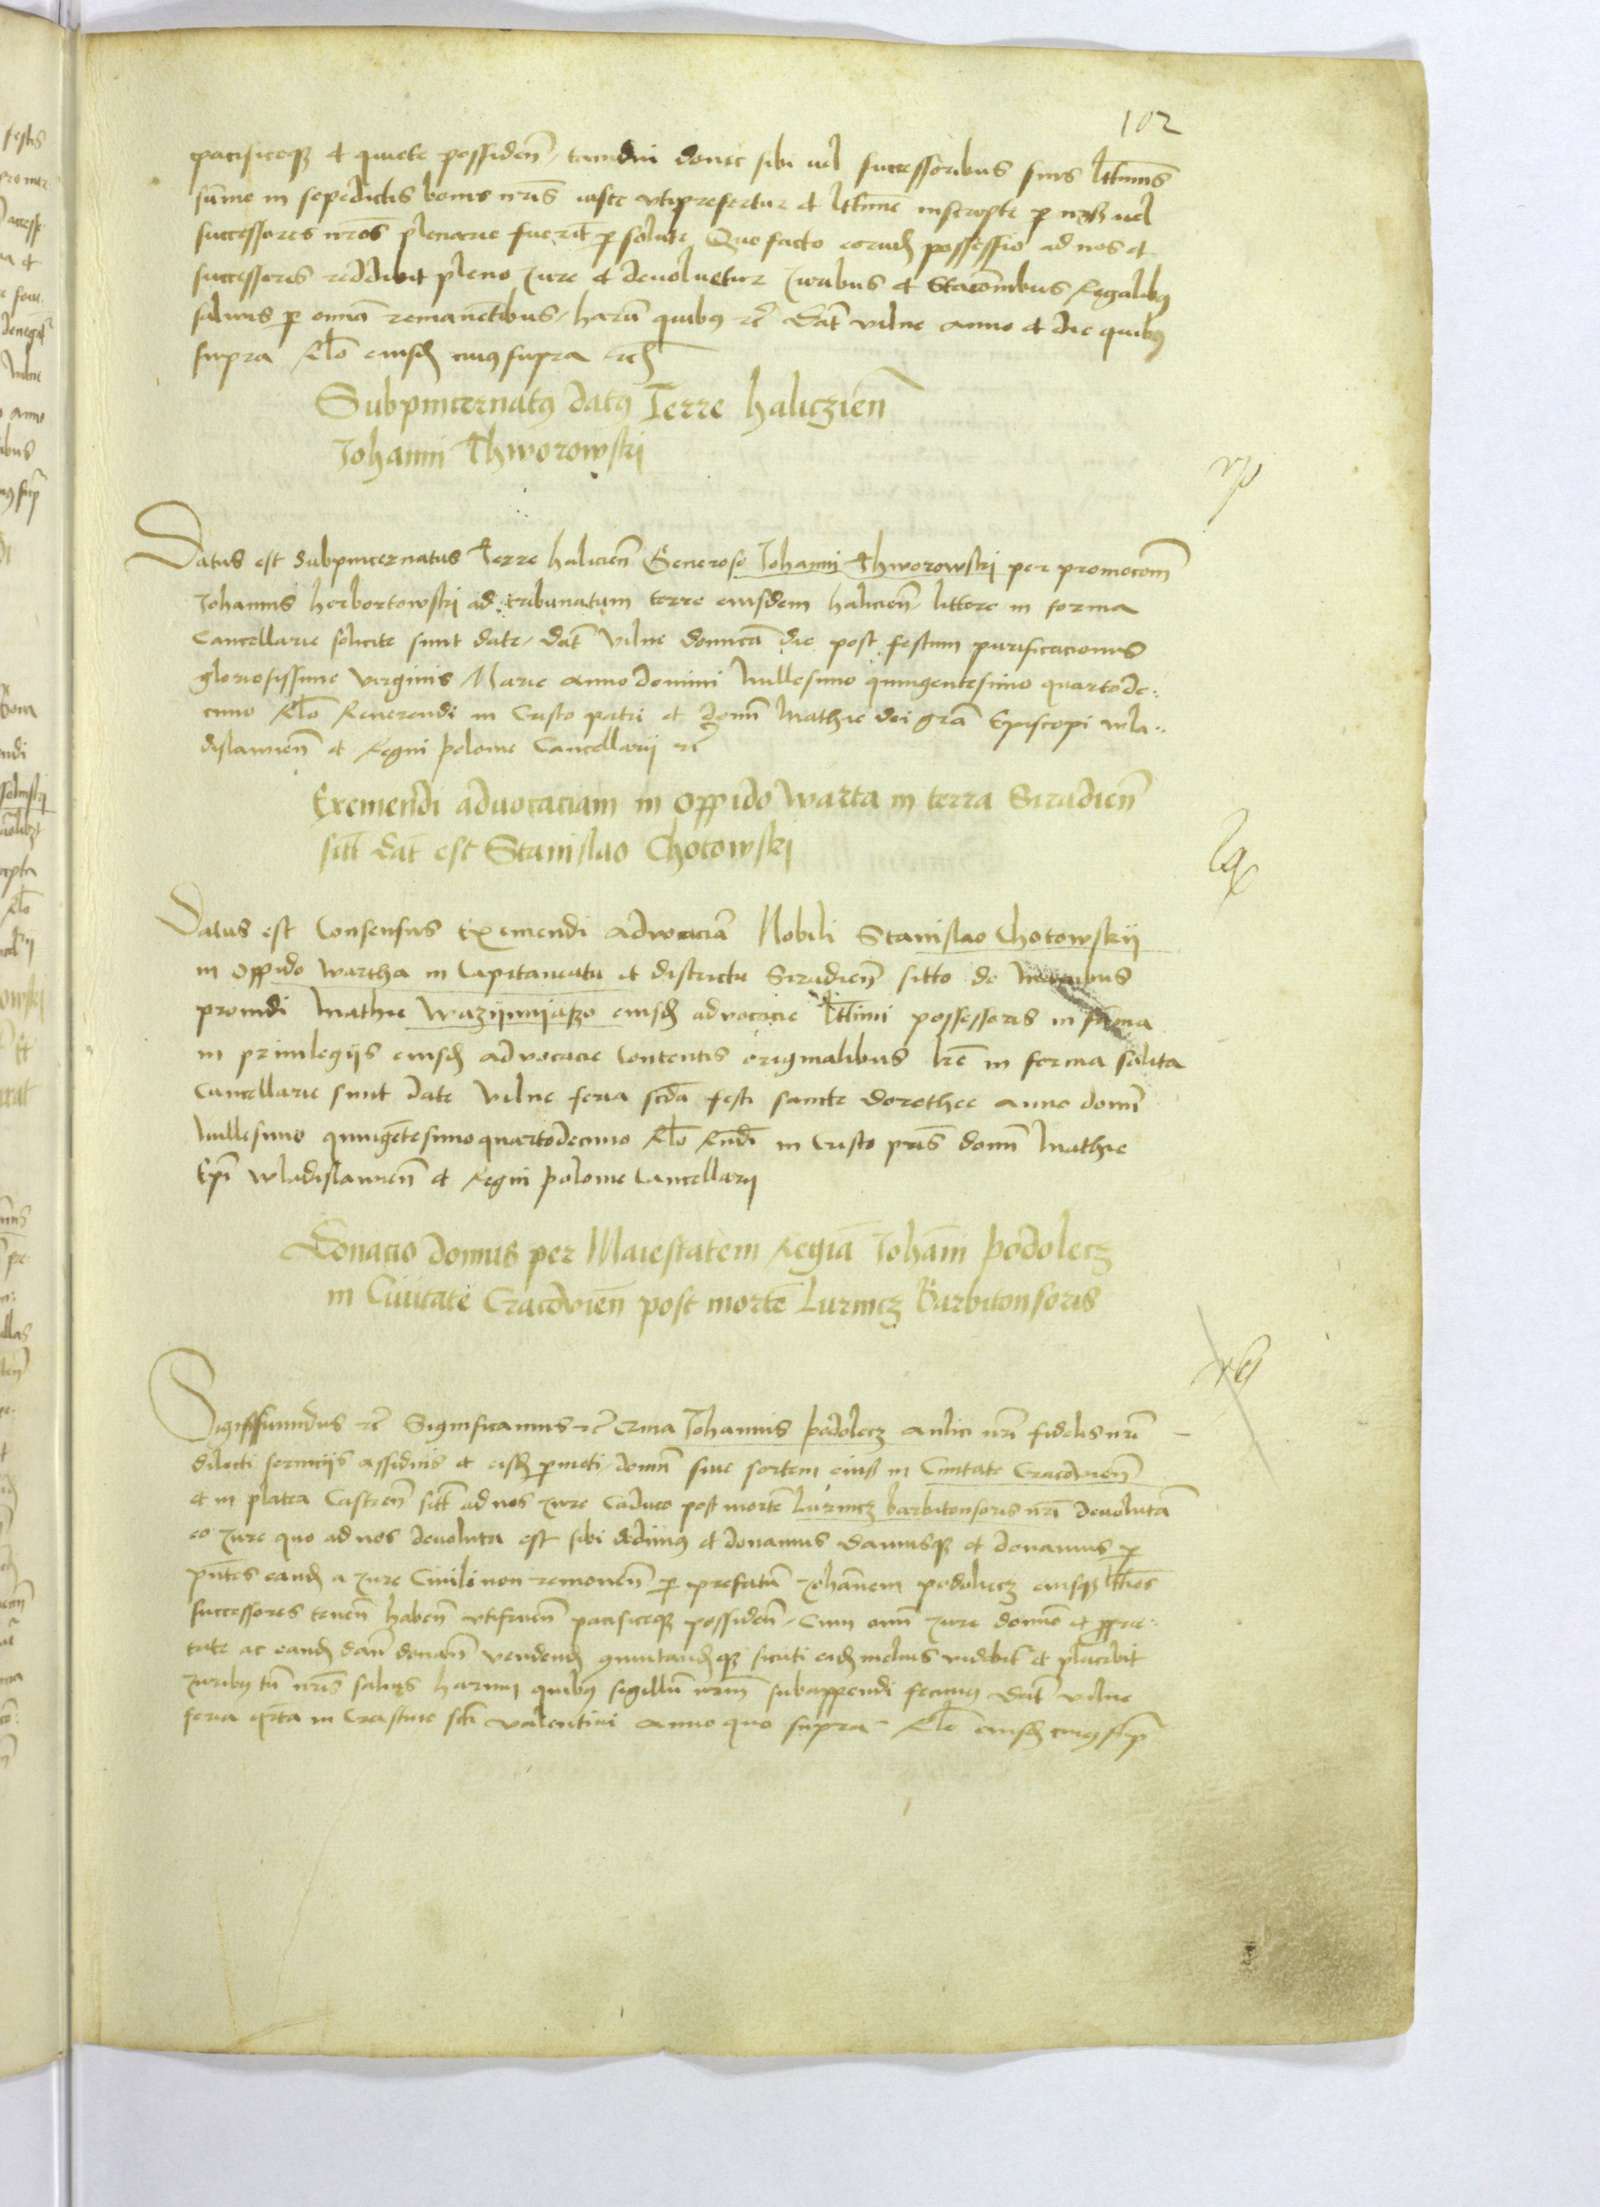 102
pacificeqȝ et quiete possidenẽ / tamdiu donec sibi vel successoribus suis lttimis
sũme in sepedictis bonis nr̃is iuste vtiprefertur et lttime inscripte p nos vel
successores nr̃os plenarie fuerĩt psolute Quo facto eorundẽ possessio ad nos et
successores reddibit pleno Jure et devoluetur Juribus et Stacionibus Regalibus
saluis p omnia remanẽtibus / harũ quibus etc̃ Dat̃ vilne anno et die quibus
supra Rlo eiusdẽ cuius supra
Subpincernatus datus Terre haliczien̄
Johanni Thworowski
Datus est Subpincernatus Terre halicien̄ Generoso Johanni Thworowski per promocõem
Johannis herbortowski ad tribunatum terre eiusdem halicien̄ littere in forma
Cancellarie solicite sunt date / dat̃ vilne dominica die post festum purificacionis
gloriosissime virginis Marie anno domini Millesimo quingentesimo quartode:
cimo Rlo Reuerendi in Cristo patri et domĩ Mathie dei gra Episcopi wla:
dislauien̄ et Regni polonie Cancellarij etc̃
Exemendi aduocaciam in oppido warta in terra Siradien̄
sitt dat̃ est Stanislao Chotowski
Datus est Consensus Eximendi advocaciã Nobili Stanislao Chotowskij
in oppido wartha in Capitaneatu et districtu Siradien̄ sitto de manibus
prouidi Mathie eiusdẽ advocacie lttimi possessoris in sũma
in priuilegijs eiusdẽ advocacie Contentis originalibus lrẽ in forma solita
Cancellarie sunt date vilne feria scda festi sancte dorothee anno domĩ
Millesimo quingẽtesimo quartodecimo Rlo Rndi in Cristo pris domĩ Mathie
Epĩ wladislauien̄ et Regni polonie Cancellarij
Donacio domus per Maiestatem Regiã Johãni podolecz
in Ciuitate Cracouien̄ post mortẽ Lurincz Barbitonsoris
Sigissmundus etc̃ Significamus etc̃ Johannis podolecz aulici nr̃i fidelis nr̃i
dilecti seruicijs assiduis et eisdẽ pmoti domũ siue sortem eius in Ciuitate Cracouien̄
et in platea Castren̄ sitt ad nos Jure Caduco post mortẽ Lurincz barbitonsoris nr̃i deuolutã
eo Jure quo ad nos deuoluta est sibi dedimus et donamus damusqȝ et donamus p
pñtes eandẽ a Jure Ciuili non remouen̄ p prefatũ Johãnem podolecz eiusqȝ lttimos
successores tenen̄ haben̄ vtifruen̄ pacificeqȝ possiden̄ / Cum omĩ Jure domĩo et pprie:
tate ac eandẽ dan̄ donan̄ vendendẽ comutandẽqȝ sicuti eidẽ melius videbit̃ et placebit
Juribus tñ nr̃is saluis harum quibus sigillũ nrũm subappendi fecimus Dat̃ vilne
feria qrta in Crastino scti valentini anno quo supra Rlo eiusdẽ cuius supra